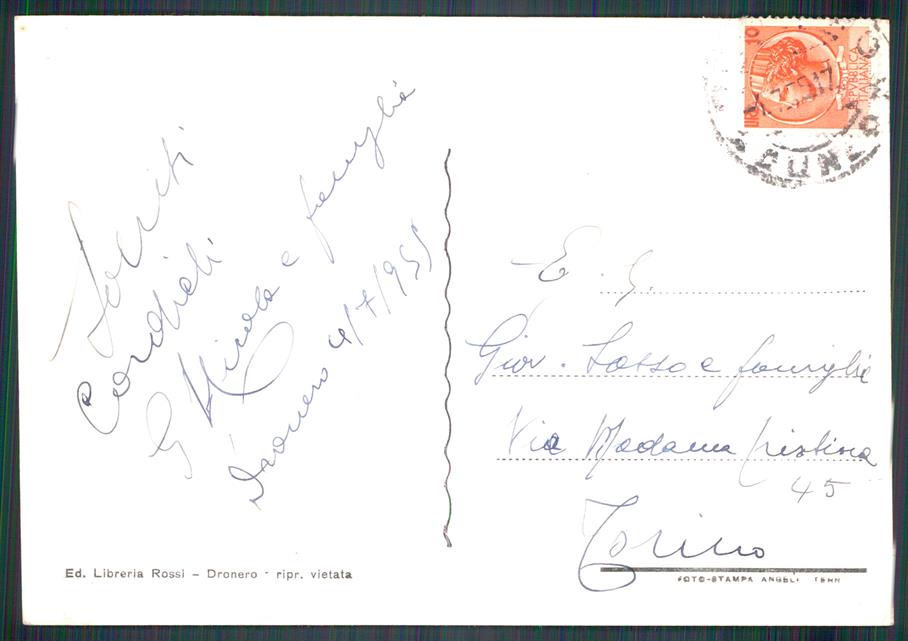 Saluti
Cordiali
G Nicola e famiglia
Dronero 4/7/955
LIRE 10
REPUBBLICA
ITALIANA
E. G.
Giov. Sasso e famiglia
Via Madama Cristina
45
Torino
Ed. Libreria Rossi – Dronero - ripr. vietata
FOTO-STAMPA ANGELI TERNI